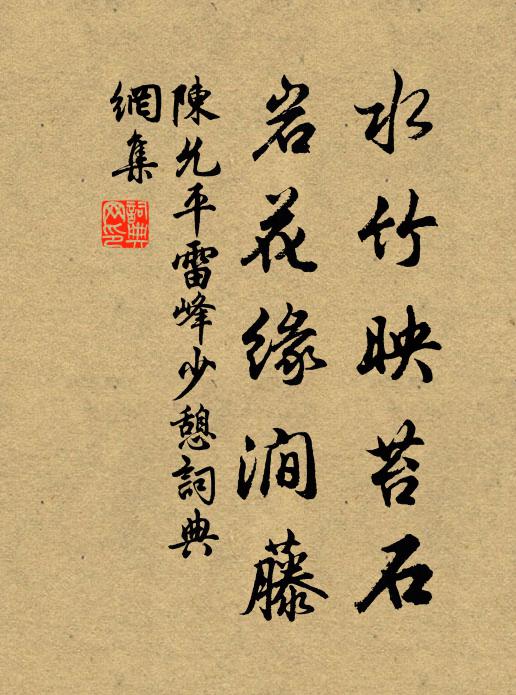 水竹映苔石
岩花缘澗藤
陳允平雷峰少憩詞典
網集
詞典
网印